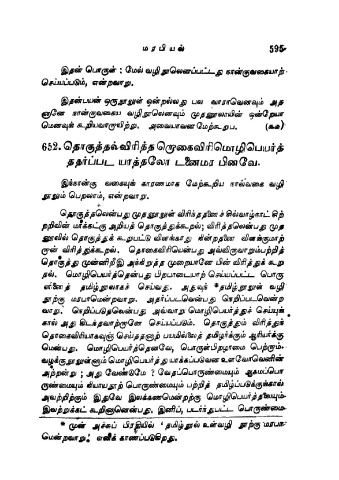 மரபியல் 595
இதன் பொருள் : மேல் வழிநூலெனப்பட்டது நான்குவகையாற்
செய்யப்படும், என்றவாறு.
இதன்பயன் ஒருநூலுள் ஒன்றல்லது பல வாராவெனவும் அத
னானே நான்குவகைய வழிநூலெனவும் முதனூலாயின் ஒன்றேயா
மெனவுங் கூறியவாறாயிற்று. அவையாவன மேற்கூறுப.
652. தொகுத்தல்விரித்த றொகைவிரிமொழிபெயர்த்
ததர்ப்பட யாத்தலோ டனைமர பினவே.
இந்நான்கு வகையுங் காரணமாக மேற்கூறிய நால்வகை வழி
நூலும் பெறலாம், என்றவாறு.
தொகுத்தலென்பது முதனூலுள் விரிந்ததனைச் சில்வாழ்நாட் சிற்
றறிவின் மாக்கட்கு அறியத் தொகுத்துக்கூறல்; விரித்தலென்பது முத
னூலில் தொகுத்துக் கூறப்பட்டு விளங்காது நின்றதனை விளங்குமாற்
றான் விரித்துக்கூறல். தொகைவிரியென்பது அவ்விருவாறும்பற்றித்
தொகுத்து முன்னிறீஇ அந்நிறுத்த முறையானே பின் விரித்துக் கூறு
தல். மொழிபெயர்த்தென்பது பிறபாடையாற் செய்யப்பட்ட பொரு
ளினைத் தமிழ்நூலாகச் செய்வது. அதுவுந் *தமிழ்நூலுள் வழி
நூற்கு மரபாமென்றவாறு. அதர்ப்படவென்பது நெறிப்படவென்ற
வாறு. நெறிப்படுதலென்பது அவ்வாறு மொழிபெயர்த்துச் செய்யுங்
கால் அது கிடந்தவாற்றானே செய்யப்படும். தொகுத்தும் விரித்துந்
தொகைவிரியாகவுஞ் செய்ததனாற் பயமில்லைத் தமிழர்க்கும் ஆரியர்க்கு
மென்பது. மொழிபெயர்த்தெனவே, பொருள்பிறழாமை பெற்றாம்.
வழக்குநூலுள்ளும் மொழிபெயர்த்து யாக்கப்படுவன உளவோவெனின்
அற்றன்று; அது வேண்டுமே? வேதப்பொருண்மையும் ஆகமப்பொ
ருண்மையும் நியாயநூற் பொருண்மையும் பற்றித் தமிழ்ப்படுக்குங்கால்
அவற்றிற்கும் இதுவே இலக்கணமென்றற்கு மொழிபெயர்த்தலையும்
இவற்றுக்கட் கூறினானென்பது, இனிப், படர்ந்துபட்ட பொருண்மை
* முன் அச்சுப் பிரதியில் 'தமிழ்நூலுள்வழி நூற்கு மரபாக
மென்றவாறு' எனக் காணப்படுகிறது.